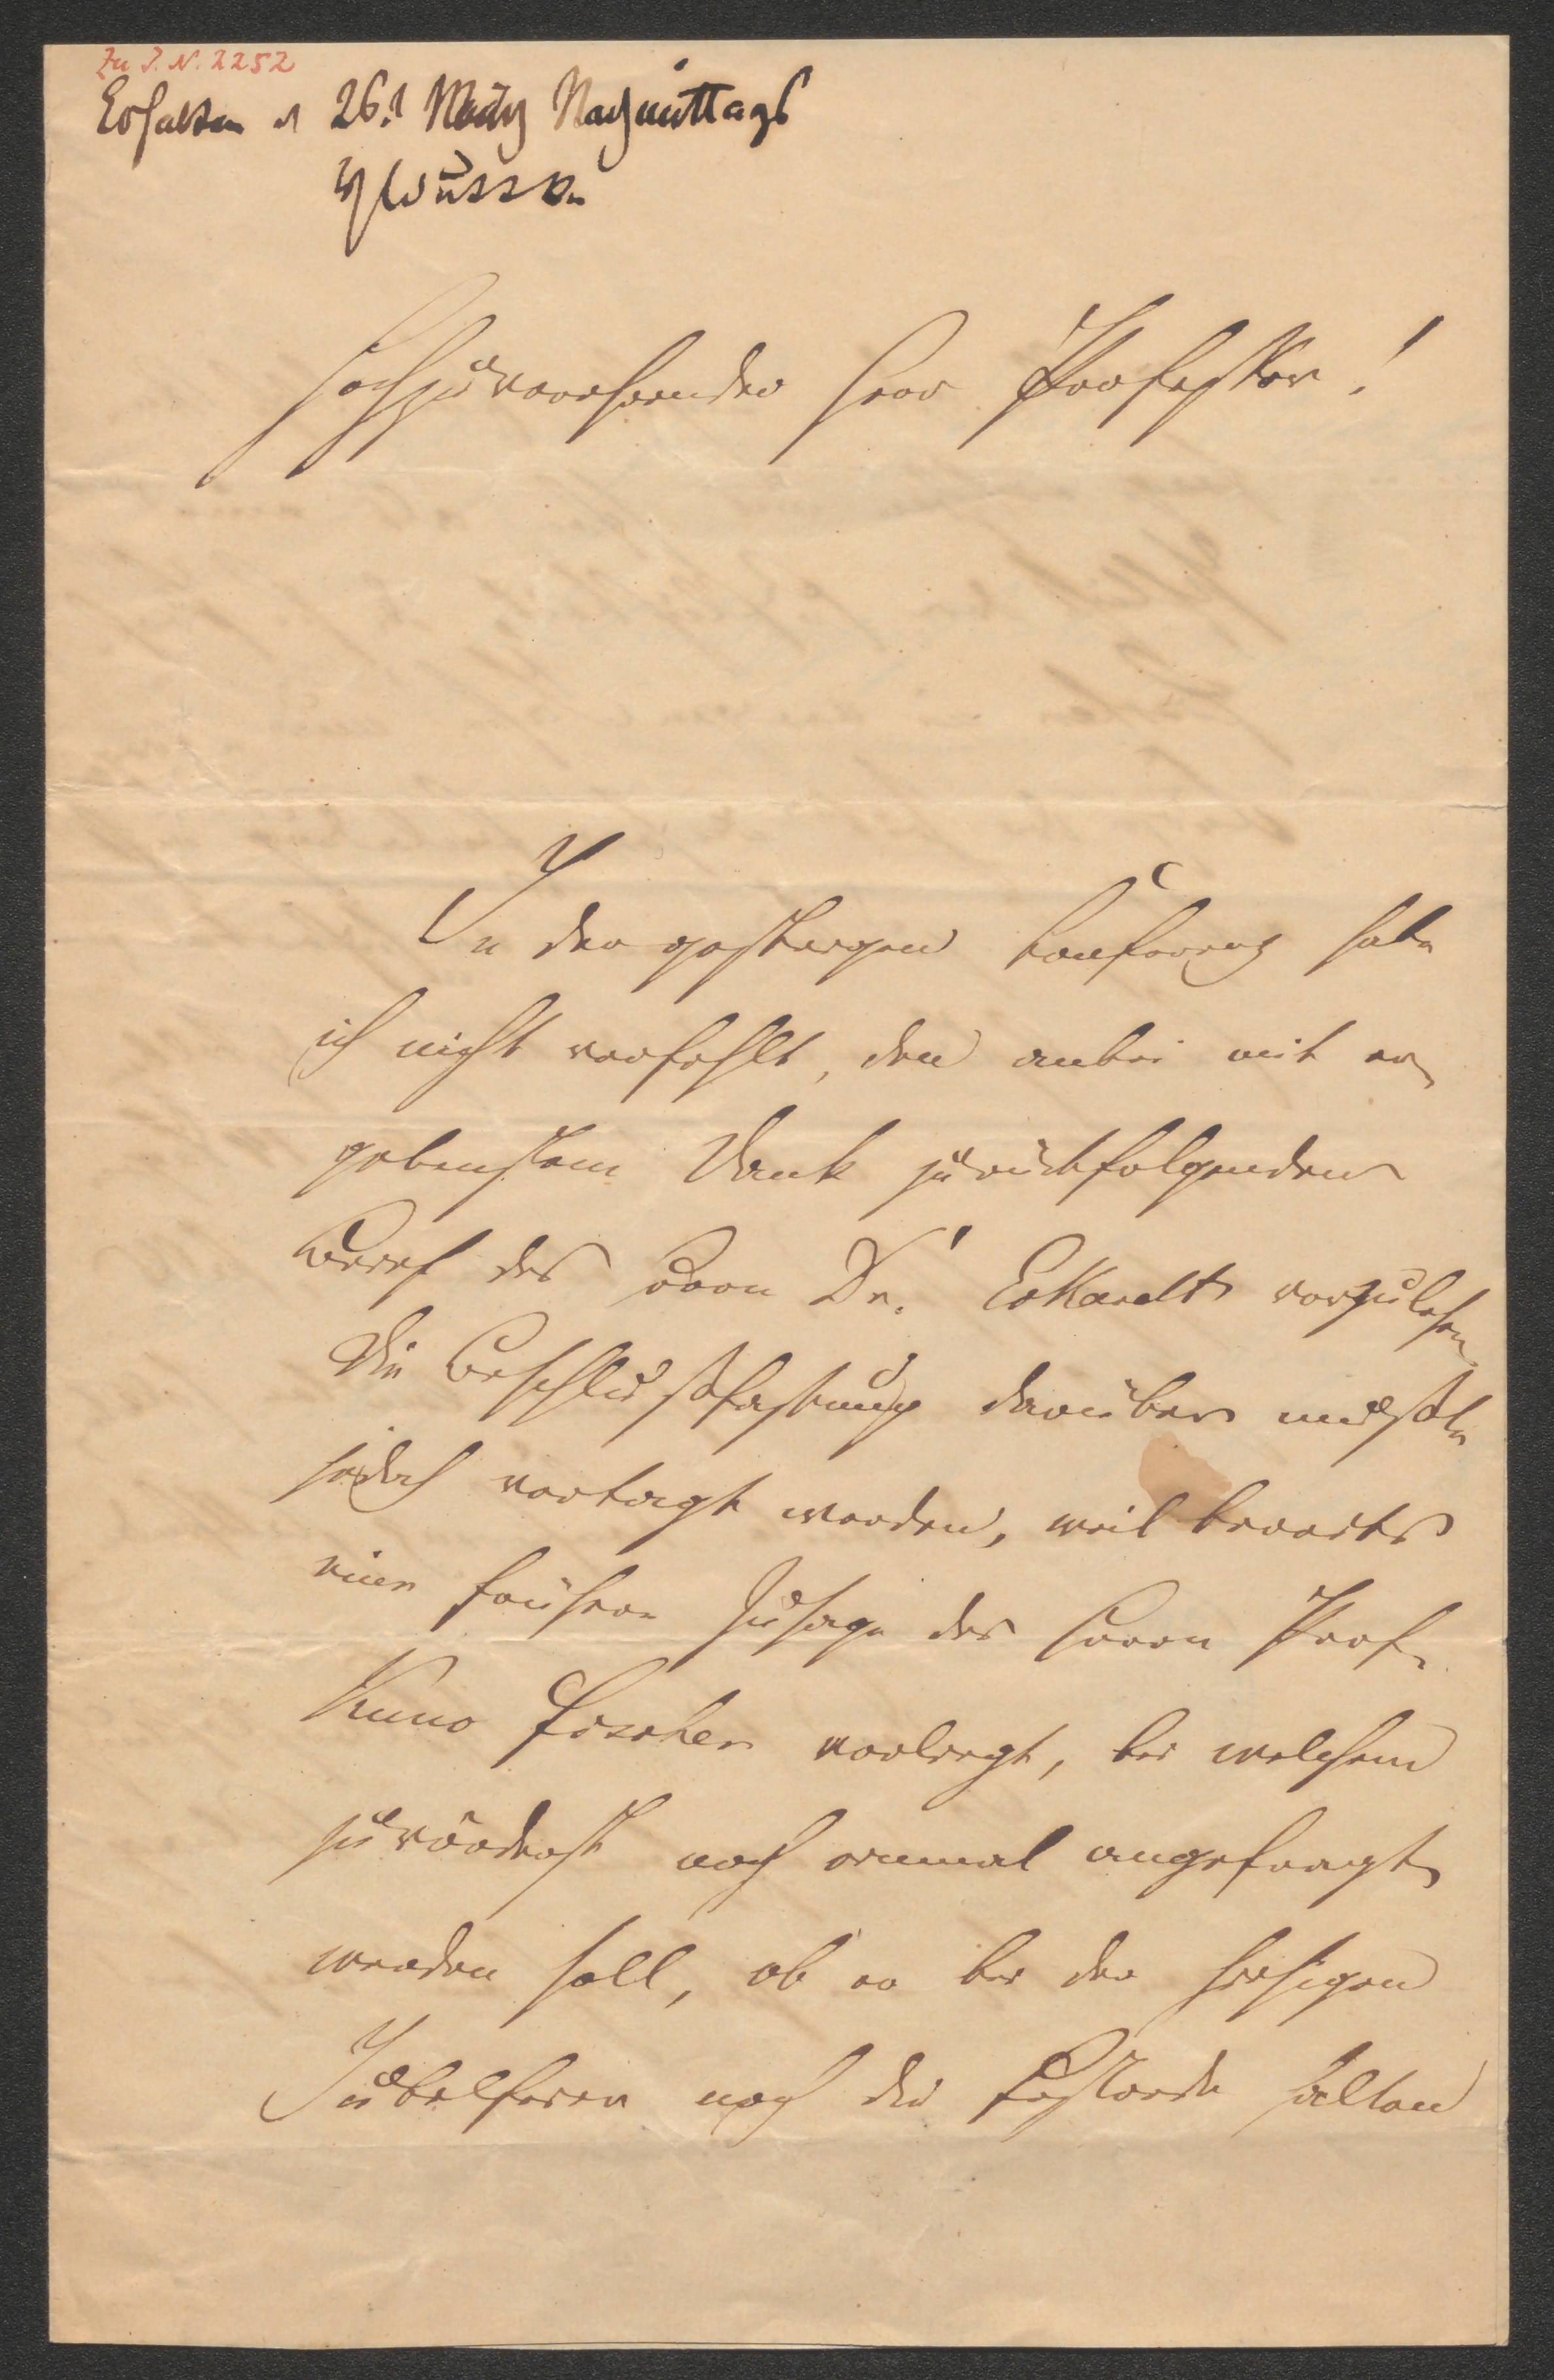 Zu I. N. 2252
Erhalten d 26.t März Nachmittags
Hochzuverehrender Herr Professor!
In der gestrigen Conferenz habe
ich nicht verfehlt, den anbei mit er-
gebenstem Dank zurückfolgenden
Brief des Herrn Dr. Eckardt vorzulesen,
die Beschlußfassung darüber mußte
jedoch vertagt werden, weil bereits
eine frühere Zusage des Herrn Prof.
Kuno Fischer vorliegt, bei welchem
zuvörderst noch einmal angefragt
werden soll, ob er bei der hiesigen
Jubelfeier noch die Festrede halten